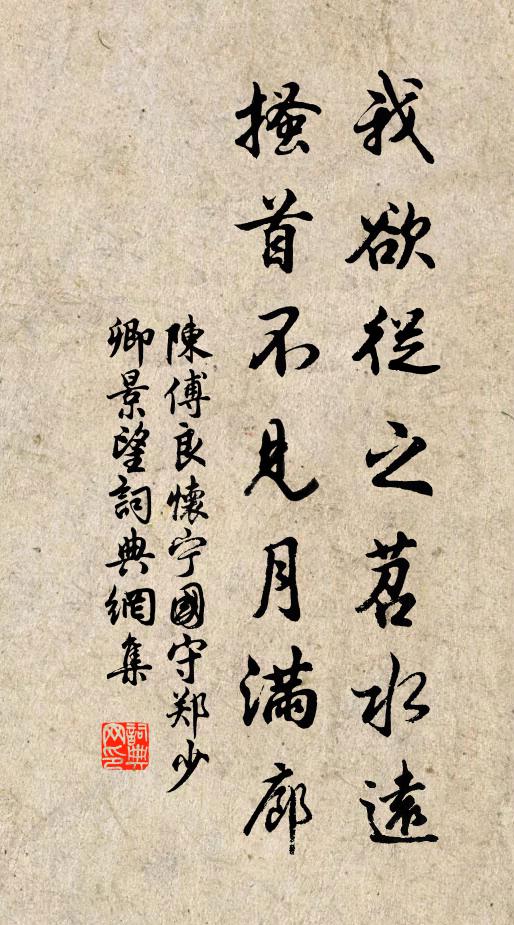 我欲從之苕水遠
搔首不見月滿廊
陳傅良懷宁國守郑少
卿景望詞典網集
詞典網印